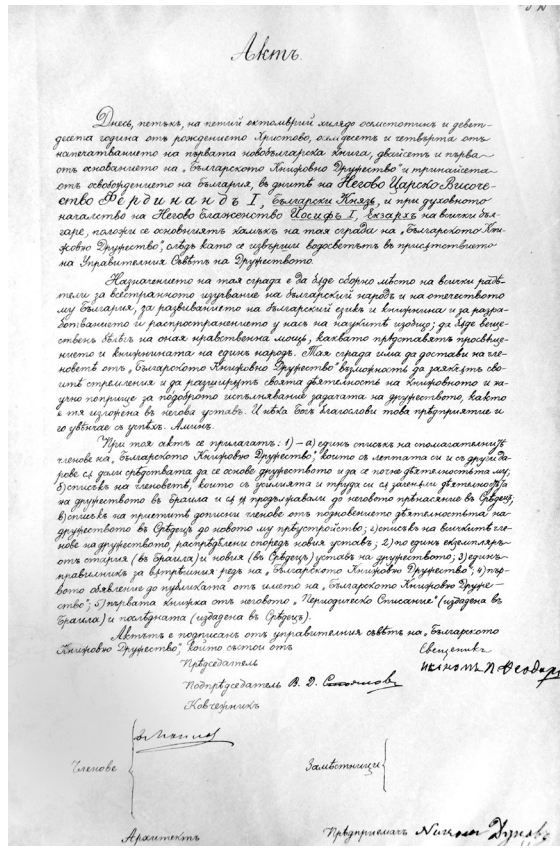 Актъ.
Днесь, петъкъ, на петий октомврий хилядо осмстотин и девет-
десета година отъ рождението Христово, осмдесет и четвърта отъ
напечатванието на първата новобългарска книга, двайсет и първа
отъ основанието на „Българското Книжовно Дружество“ и тринайсета
отъ освобождението на България, въ дните на Негово Царско Височе-
ство Фердинандъ I, Български Князъ, и при духовното
началство на Негово Блаженство Иосифъ I, Екзархъ на всички бъл-
гаре, положи се основният камъкъ на тая сграда на „Българското Кни-
жовно Дружество“, слѣдъ като се извърши водосветъ въ присѫтствието
на Управителния Съвѣтъ на Дружеството.
Назначението на тая сграда е да бѫде сборно мѣсто на всички рабо-
тели за всестранното изучвание на българский народъ и на отечеството
му България, за развиванието на българский езикъ и книжнина и за разра-
ботванието и распространението у насъ на науките изобщо; да бѫде веще-
ственъ бѣлѣгъ на оная нравственна мощь, каквато прѣдставятъ просвѣще-
нието и книжнината на единъ народъ. Тая сграда има да достави на чле-
новетѣ отъ „Българското Книжовно Дружество“ възможность да заякчѫтъ сво-
ите стремления и да разширѫтъ своята дѣятелность на книжовното и на-
учно поприще за подоброто испълнявание задачата на дружеството, както
е тя изложена в негова уставъ. И нѣка Богъ благослови това прѣдприятие и
го увѣнчае съ успѣхъ. Аминъ.
При тоя актъ се прилагатъ: 1) – а) единъ списъкъ на спомагателнитѣ
членове на „Българското Книжовно Дружество“, които съ лептата си и съ другида-
рове сѫ дали срѣдствата да се основе дружеството и да се почне дѣятелностьта му;
б) списъкъ на членоветѣ, които съ усилията и труда си сѫ заченѫли дѣятелностьта
на дружеството въ Браила и сѫ ѭ продължавали до неговото прѣнасяние въ Срѣдецъ;
в) списъкъ на приетитѣ дописни членове отъ подновението дѣятелностьта на
дружеството въ Срѣдецъ до новото му прѣустройство; г) списъкъ на всичкитѣ чле-
нове на дружеството, распрѣдѣлени споредъ новия уставъ; 2) по единъ екземпляръ
отъ стария (въ Браила) и новия (въ Срѣдецъ) уставъ на дружеството; 3) единъ
правилникъ за вѫтрѣшния редъ на „Българското Книжовно Дружество“; 4) пър-
вото обявление до публиката отъ името на „Българското Книжовно Друже-
ство“; 5) първата книжка отъ неговото „Периодическо Списание“ (издадена въ
Браила) и послѣдната (издадена въ Срѣдецъ).
Актътъ е подписан отъ управителния съвѣтъ на „Българското
Книжовно Дружество“, който състои отъ
Свещеникъ
Прѣдседатель
Подпрѣдседатель В. Д. Стояновъ
Ковчежникъ
Членове
Замѣстници
Архитектъ
Прѣдприемачъ Никола